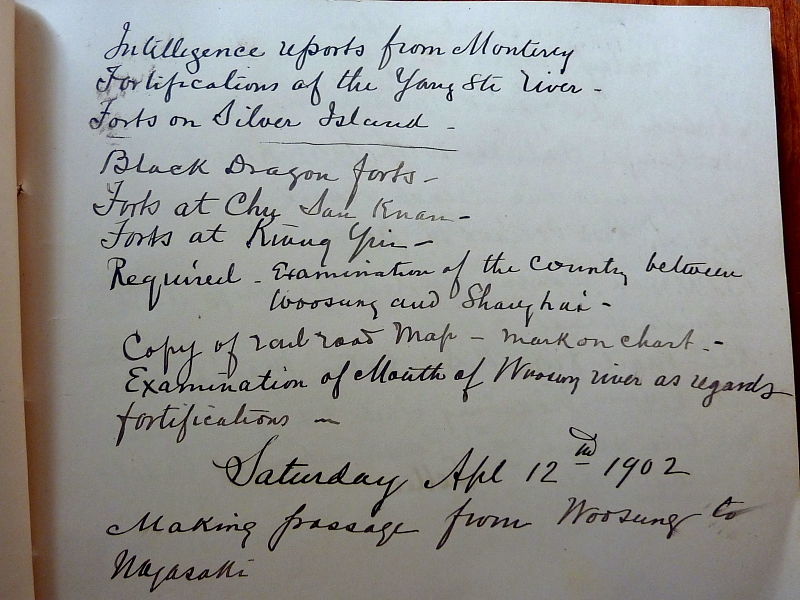 Intelligence reports from Monterey
Fortifications of the Yang Ste river -
Forts on Silver Island -
Black Dragon forts -
Forts at Chu San Kuan -
Forts at Kiung Yin -
Required - Examination of the country between
Woosung and Shanghai -
Copy of rail road Map - mark on chart. -
Examination of Mouth of Woosung river as regards
fortifications -
Saturday Apl 12nd 1902
Making passage from Woosung to
Nagasaki